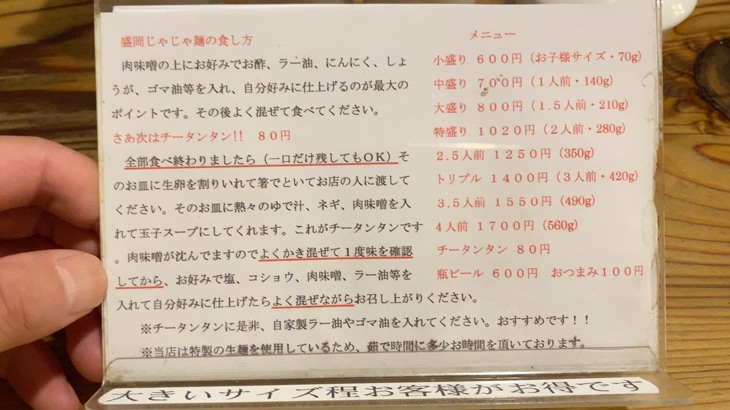 盛岡じゃじゃ麺の食し方
肉味噌の上にお好みでお酢、ラー油、にんにく、しょ
うが、ゴマ油等を入れ、自分好みに仕上げるのが最大の
ポイントです。その後よく混ぜて食べてください。
さあ次はチータンタン!! 80円
全部食べ終わりましたら(一口だけ残してもOK)そ
のお皿に生卵を割りいれて箸でといてお店の人に渡して
ください。そのお皿に熱々のゆで汁、ネギ、肉味噌を入
れて玉子スープにしてくれます。これがチータンタンです
。肉味噌が沈んでますのでよくかき混ぜて1度味を確認
してから、お好みで塩、コショウ、肉味噌、ラー油等を
入れて自分好みに仕上げたらよく混ぜながらお召し上がりください。
※チータンタンに是非、自家製ラー油やゴマ油を入れてください。おすすめです!!
※当店は特製の生麺を使用しているため、茹で時間に多少お時間を頂いております。
メニュー
小盛り 600円(お子様サイズ・70g)
中盛り 700円(1人前・140g)
大盛り 800円(1.5人前・210g)
特盛り 1020円(2人前・280g)
2.5人前 1250円(350g)
トリプル 1400円(3人前・420g)
3.5人前 1550円(490g)
4人前 1700円(560g)
チータンタン 80円
瓶ビール 600円 おつまみ100円
大きいサイズ程お客様がお得です